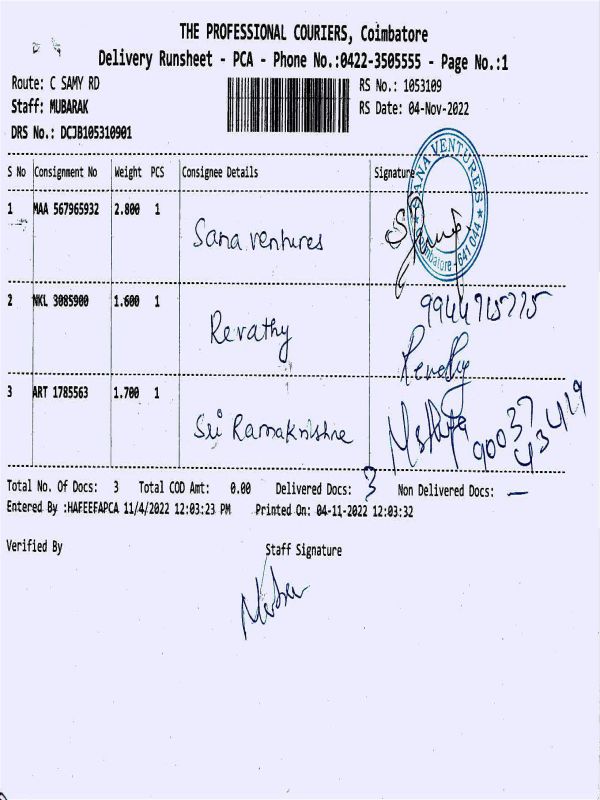 THE PROFESSIONAL COURIERS, Coimbatore
Delivery Runsheet - PCA - Phone No.:0422-3505555 - Page No.:1
Route: C SAMY RD
RS No.: 1053109
Staff: MUBARAK
RS Date: 04-Nov-2022
DRS No.: DCJB105310901
S No Consignment No Weight PCS Consignee Details Signature
SANA VENTURES
Coimbatore - 641 044
1 MAA 567965932 2.800 1 Sana ventures
2 NKL 3085900 1.600 1 Revathy
9944715775
Revathy
3 ART 1785563 1.700 1 Sri Ramakrishne
90037
43419
Total No. Of Docs: 3 Total COD Amt: 0.00 Delivered Docs: 3 Non Delivered Docs: —
Entered By :HAFEEFAPCA 11/4/2022 12:03:23 PM Printed On: 04-11-2022 12:03:32
Verified By Staff Signature